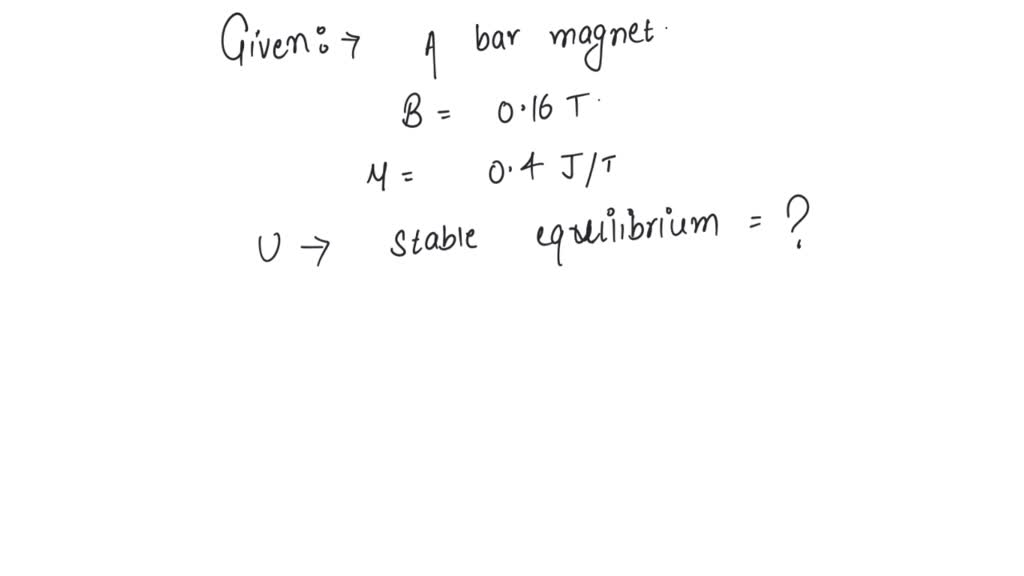 Given:→ A bar magnet.
B = 0.16 T.
M = 0.4 J/T
U → stable equilibrium = ?